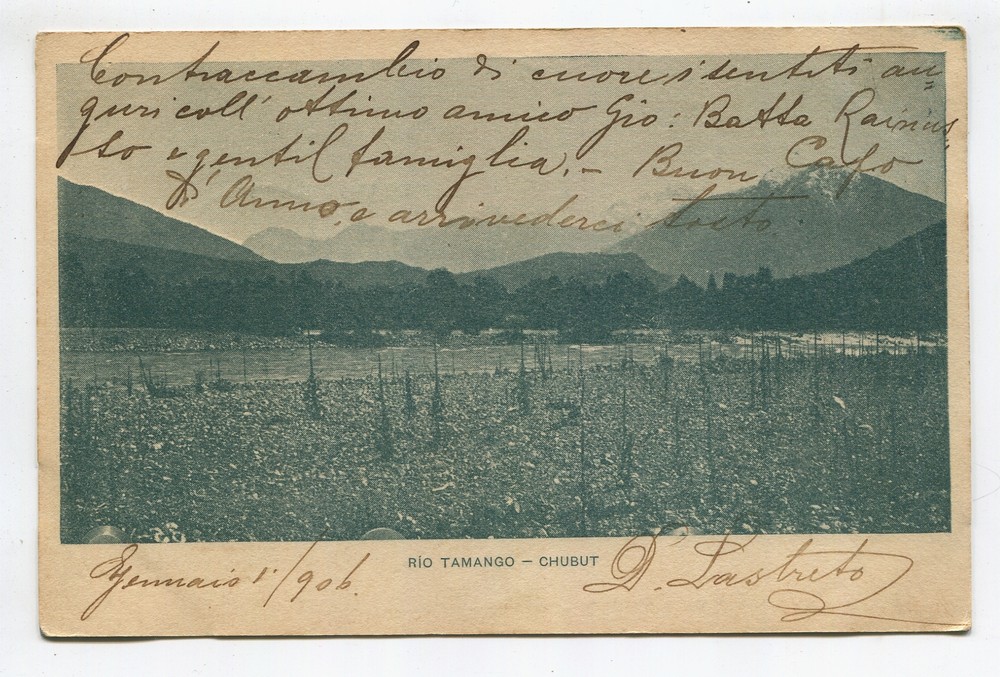 Contraccambio di cuore i sentiti au=
guri coll' ottimo amico Gio: Batta
to e gentil famiglia. – Buon Capo
d' Anno, e arrivederci tosto.
Gennaio 1°/906.
RÍO TAMANGO – CHUBUT
D. Lastreto